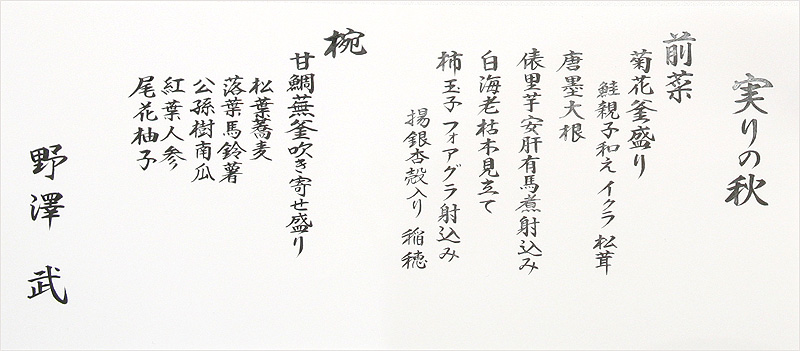 実りの秋
前菜
菊花釜盛り
鮭親子和え イクラ 松茸
唐墨大根
俵里芋安肝有馬煮射込み
白海老枯木見立て
柿玉子フォアグラ射込み
揚銀杏殻入り 稲穂
椀
甘鯛蕪釜吹き寄せ盛り
松葉蕎麦
落葉馬鈴薯
公孫樹南瓜
紅葉人参
尾花柚子
野澤 武